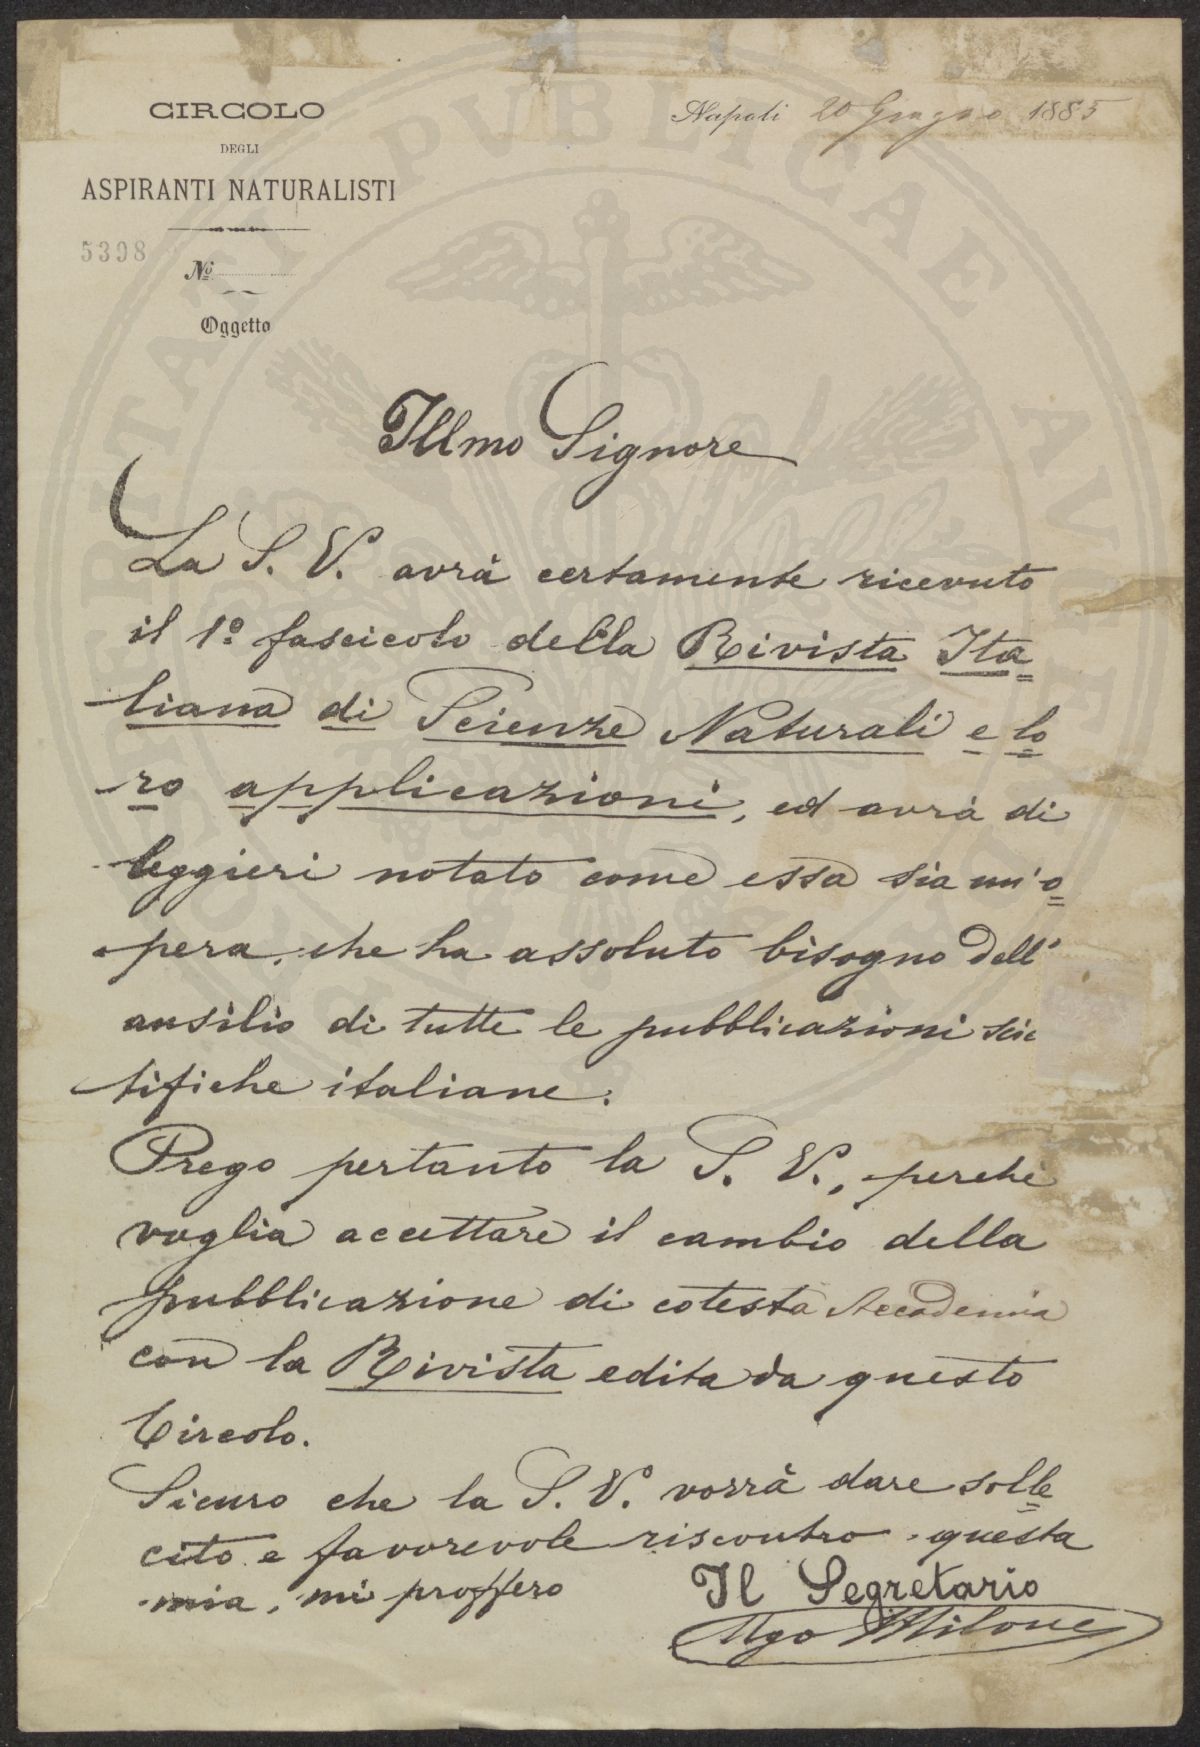 CIRCOLO
DEGLI
ASPIRANTI NATURALISTI
Napoli 20 Giugno 1885
5398
No
Oggetto
Illmo Signore
La S. V. avrà certamente ricevuto
il 1º fascicolo della Rivista Ita
liana di Scienze Naturali e lo
ro applicazioni, ed avrà di
leggieri notato come essa sia un'o
pera, che ha assoluto bisogno dell'
ausilio di tutte le pubblicazioni scie
tifiche italiane.
Prego pertanto la S. V., perchè
voglia accettare il cambio della
pubblicazione di cotesta Accademia
con la Rivista edita da questo
Circolo.
Sicuro che la S. V. vorrà dare solle
cito e favorevole riscontro questa
mia, mi proffero
Il Segretario
Ugo Milone